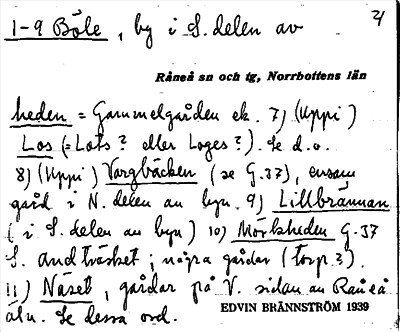 1-9 Böle, by i S. delen av 21
Råneå sn och tg, Norrbottens län
heden = Gammelgården ek. 7) (Uppi)
Los (= Lots? eller Loges?). Se d.o.
8) (Uppi) Vargbäcken (se G.37), ensam
gård i N. delen av byn. 9) Lillbrännan
(i S. delen av byn) 10) Mörksheden G.37
S. Andträsket; några gårdar (torp?).
11) Näset, gårdar på V. sidan av Råneå
älv. Se dessa ord.
EDVIN BRÄNNSTRÖM 1939